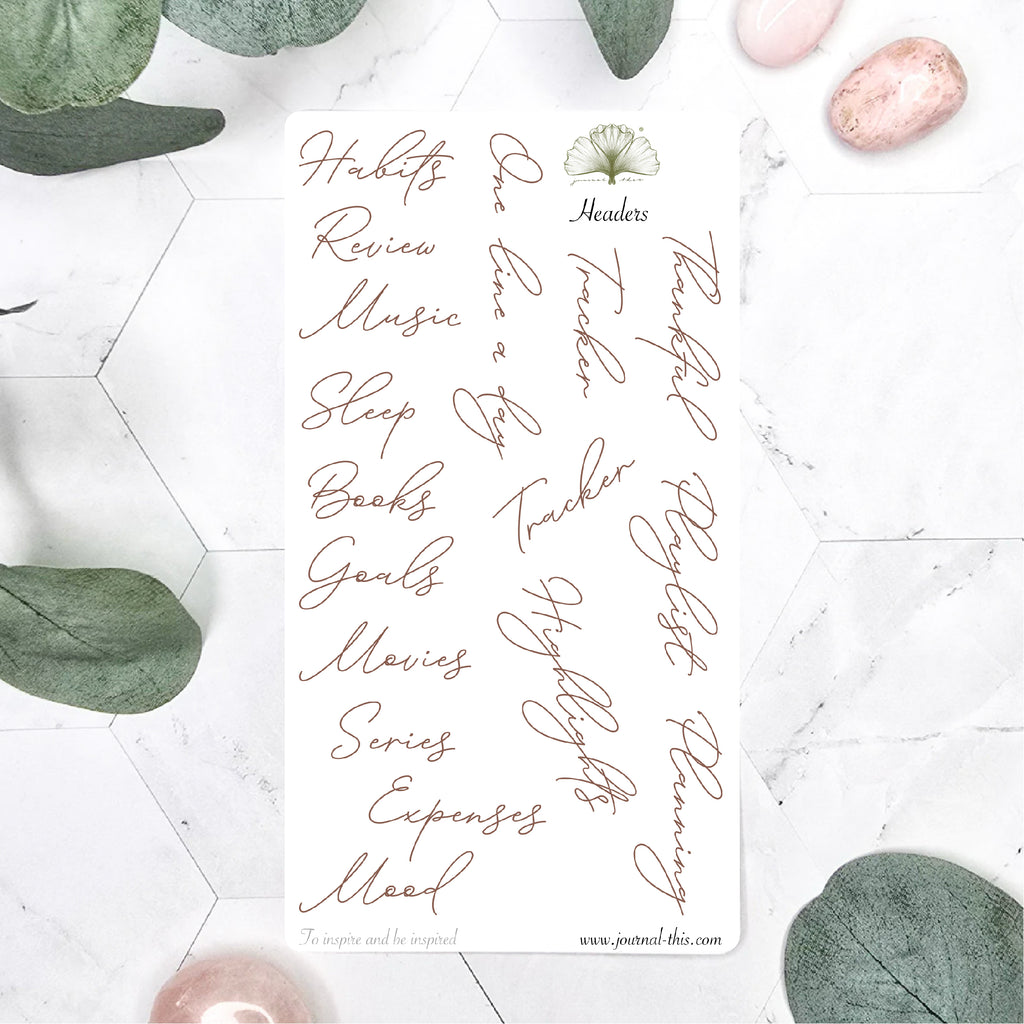 Habits
Review
Music
Sleep
Books
Goals
Movies
Series
Expenses
Mood
One line a day
journal this
Headers
Tracker
Thankful
Tracker
Highlights
Playlist
Planning
To inspire and be inspired
www.journal-this.com